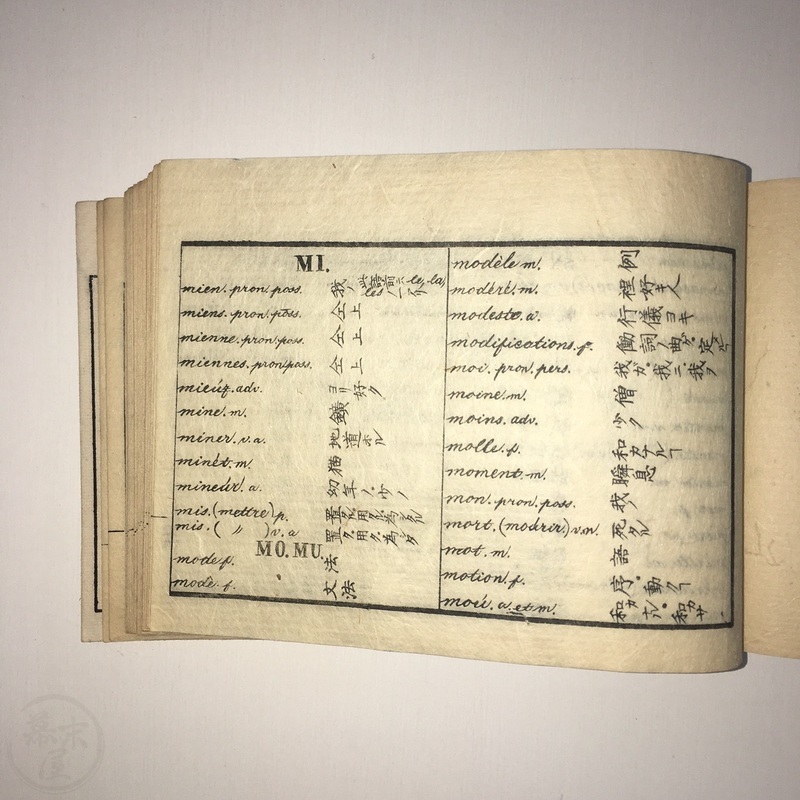 MI.
mien. pron. poss. 我ノ 此語前ニ le, la, les ノ一ツ
miens. pron. poss. 仝上
mienne. pron. poss. 仝上
miennes. pron. poss. 仝上
mieúx. adv. ヨリ好ク
mine. m. 鑛
miner. v. a. 地道ホル
minét. m. 猫
mineúr. a. 幼年ノ・少ノ
mis. (mettre) p. 置タル・用タル・為タル
mis. ( 〃 ) v. a 置タ・用タ・為タ
MO. MU.
mode. f. 法
mode. f. 文法
modèle m. 例
modéré. m. 程好キ人
modeste. a. 行儀ヨキ
modifications. f. 働詞ノ曲ガ・定
moi. pron. pers. 我ガ・我ニ・我ヲ
moine. m. 僧
moins. adv. 少ク
molle. f. 和カナル
moment. m. 瞬息
mon. pron. poss. 我ノ
mort. (moúrir) v. n. 死タル
mot. m. 語
motion. f. 序・動ク
moú. a. et m. 和カナル・和カサ
幕末屋